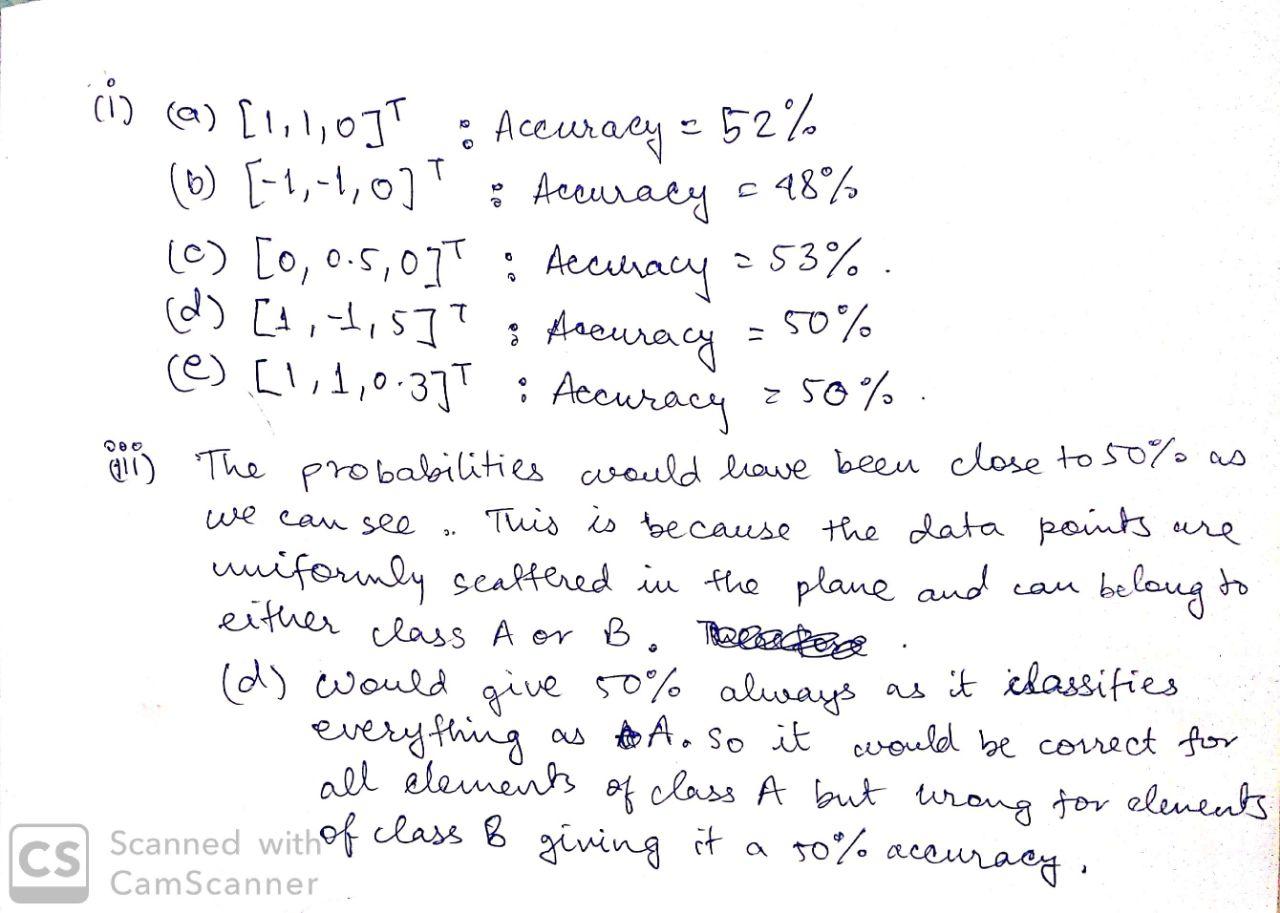 (i) (a) [1,1,0]ᵀ : Accuracy = 52%
(b) [-1,-1,0]ᵀ : Accuracy = 48%
(c) [0, 0.5, 0]ᵀ : Accuracy = 53% .
(d) [1, -1, 5]ᵀ : Accuracy = 50%
(e) [1, 1, 0.3]ᵀ : Accuracy = 50% .
iii) The probabilities would have been close to 50% as
we can see . This is because the data points are
uniformly scattered in the plane and can belong to
either class A or B. .
(d) would give 50% always as it classifies
everything as A. So it would be correct for
all elements of class A but wrong for elements
of class B giving it a 50% accuracy.
CS Scanned with
CamScanner